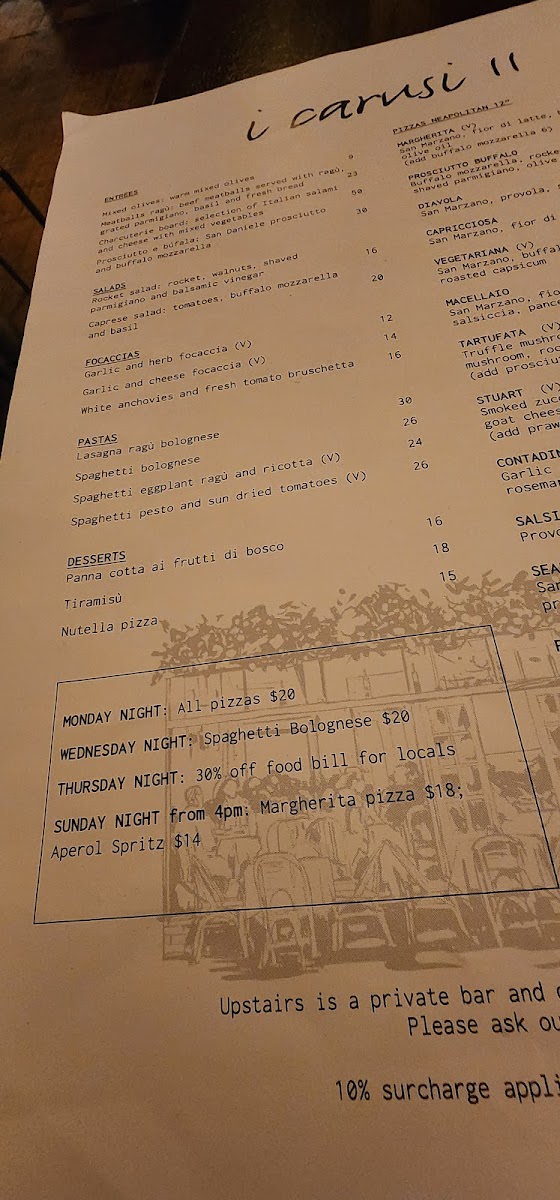 i carusi II
ENTREES
Mixed olives: warm mixed olives 9
Meatballs ragù: beef meatballs served with ragù, 23
grated parmigiano, basil and fresh bread
Charcuterie board: selection of Italian salami 50
and cheese with mixed vegetables
Prosciutto e búfala: San Daniele prosciutto 30
and buffalo mozzarella
SALADS
Rocket salad: rocket, walnuts, shaved 16
parmigiano and balsamic vinegar
Caprese salad: tomatoes, buffalo mozzarella 20
and basil
FOCACCIAS
Garlic and herb focaccia (V) 12
Garlic and cheese focaccia (V) 14
White anchovies and fresh tomato bruschetta 16
PASTAS
Lasagna ragù bolognese 30
Spaghetti bolognese 26
Spaghetti eggplant ragù and ricotta (V) 24
Spaghetti pesto and sun dried tomatoes (V) 26
DESSERTS
Panna cotta ai frutti di bosco 16
Tiramisù 18
Nutella pizza 15
PIZZAS NEAPOLITAN 12"
MARGHERITA (V)
San Marzano, fior di latte,
olive oil
(add buffalo mozzarella 6)
PROSCIUTTO BUFFALO
Buffalo mozzarella, rocke
shaved parmigiano, olive
DIAVOLA
San Marzano, provola,
CAPRICCIOSA
San Marzano, fior di
VEGETARIANA (V)
San Marzano, buffal
roasted capsicum
MACELLAIO
San Marzano, fio
salsiccia, panc
TARTUFATA (V)
Truffle mushro
mushroom, roc
(add prosciu
STUART (V)
Smoked zucc
goat chees
(add praw
CONTADIN
Garlic
rosemar
SALSI
Provo
SEA
San
pr
MONDAY NIGHT: All pizzas $20
WEDNESDAY NIGHT: Spaghetti Bolognese $20
THURSDAY NIGHT: 30% off food bill for locals
SUNDAY NIGHT from 4pm: Margherita pizza $18;
Aperol Spritz $14
Upstairs is a private bar and
Please ask ou
10% surcharge appli